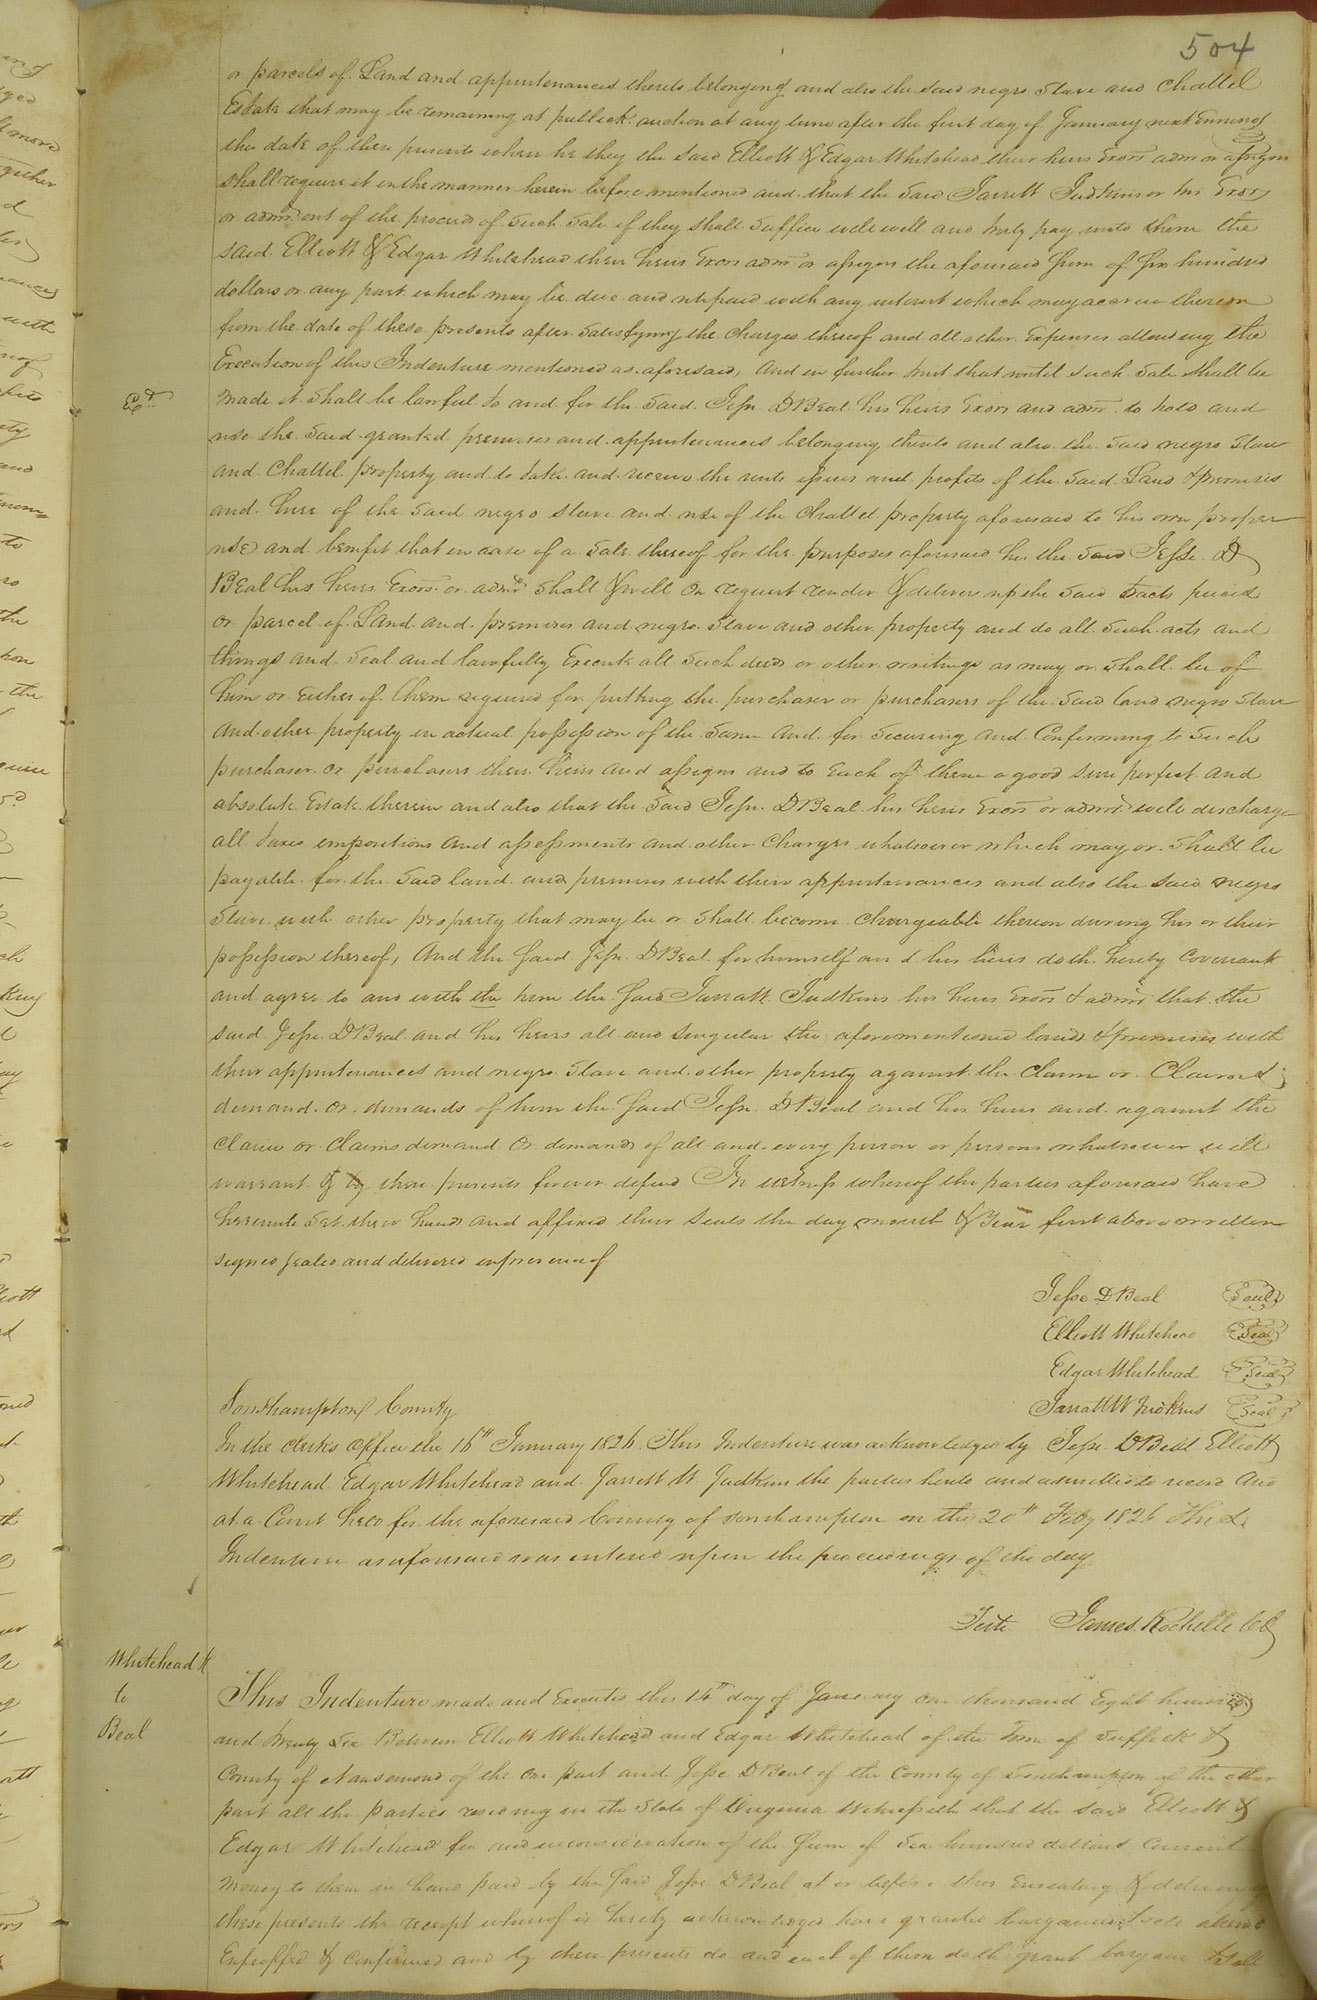 504
or parcels of Land and appurtenances thereto belonging and also the said negro Slave and Chattel
Estate that may be remaining at publick auction at any time after the first day of January next Ensuing
the date of these presents when he they the said Elliott & Edgar Whitehead their heirs Exors adm or assigns
shall require it in the manner herein before mentioned and that the said Jarratt Judkins or his Exors
or admr. out of the proceeds of such sale if they shall suffice will well and truly pay unto them the
said Elliott & Edgar Whitehead their heirs Exors adm or assigns the aforesaid Sum of Six hundred
dollars or any part which may be due and unpaid with any interest which may accrue thereon
from the date of these presents after satisfying the charges thereof and all other Expenses attending the
Execution of this Indenture mentioned as aforesaid, And in further trust that until such Sale Shall be
Exd.
made it Shall be lawful to and for the said Jesse D Beal his heirs Exors and adm. to hold and
use the said granted premises and appurtenances belonging thereto and also the said negro Slave
and Chattel property and to take and receive the rents issues and profits of the said Land & premises
and hire of the said negro slave and use of the Chattel property aforesaid to his own proper
use and benefit that in case of a sale thereof for the purposes aforesaid he the said Jesse D
Beal his heirs Exors. or admrs Shall & will on request render & deliver up the said tracts pieces
or parcel of Land and premises and negro Slave and other property and do all such acts and
things and Seal and lawfully Execute all such deeds or other writings as may or shall be of
him or Either of them required for putting the purchaser or purchasers of the said land negro Slave
and other property in actual possession of the same and for securing and Confirming to such
purchaser or purchasers their heirs and assigns and to Each of them a good sure perfect and
absolute Estate therein and also that the said Jesse D Beal his heirs Exors or admrs will discharge
all taxes impositions and assessments and other Charges whatsoever which may or shall be
payable for the said land and premises with their appurtenances and also the said negro
Slave with other property that may be or shall become Chargeable thereon during his or their
possession thereof, And the said Jesse D Beal for himself and his heirs doth hereby Covenant
and agree to and with the him the said Jarratt Judkins his heirs Exors & admrs that the
said Jesse D Beal and his heirs all and singular the aforementioned land & premises with
their appurtenances and negro Slave and other property against the Claim or Claims &
demand or demands of him the said Jesse D Beal and his heirs and against the
Claim or Claims demand or demands of all and every person or persons whatsoever will
warrant & by these presents forever defend In witness whereof the parties aforesaid have
hereunto Set their hands and affixed their Seals the day month & Year first above written
signed sealed and delivered in presence of
Jesse D Beal Seal
Elliott Whitehead Seal
Edgar Whitehead Seal
Jarratt W Judkins Seal
Southampton County
In the Clerks Office the 16th January 1826 This Indenture was acknowledged by Jesse D Beal Elliott
Whitehead Edgar Whitehead and Jarratt W Judkins the parties hereto and admitted to record And
at a Court held for the aforesaid County of Southampton on the 20th Feby 1826 This
Indenture as aforesaid was entered upon the proceedings of the day
Teste James Rochelle CC
Whitehead
to
Beal
This Indenture made and Executed this 14th day of January one thousand Eight hundred
and twenty Six Between Elliott Whitehead and Edgar Whitehead of the Town of Suffolk &
County of Nansemond of the one part and Jesse D Beal of the County of Southampton of the other
part all the parties residing in the State of Virginia Witnesseth that the said Elliott &
Edgar Whitehead for and in consideration of the Sum of Six hundred dollars Current
Money to them in hand paid by the said Jesse D Beal at or before the Ensealing & delivery of
these presents the receipt whereof is hereby acknowledged have granted bargained & sold aliened
Enfeoffed & confirmed and by these presents do and each of them doth grant bargain & sell